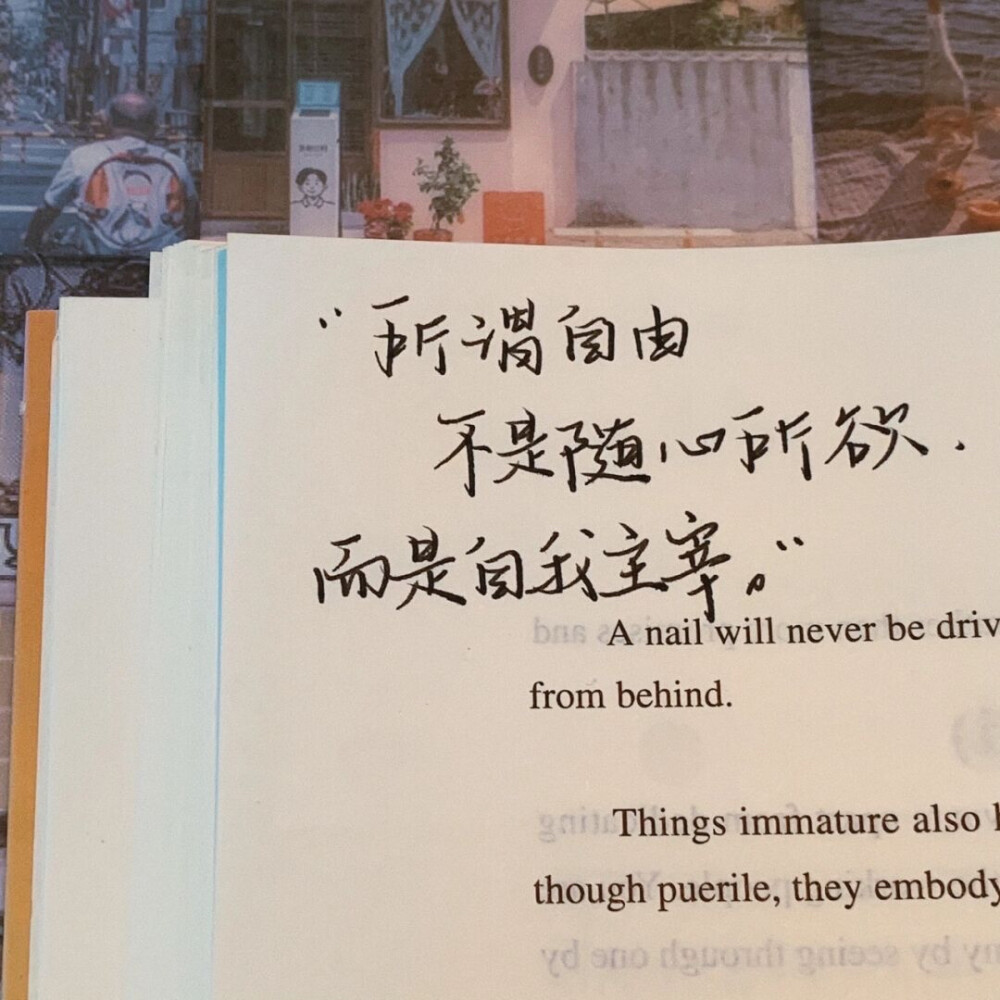 “所谓自由
不是随心所欲.
而是自我主宰。”
A nail will never be driv
from behind.
Things immature also
though puerile, they embody